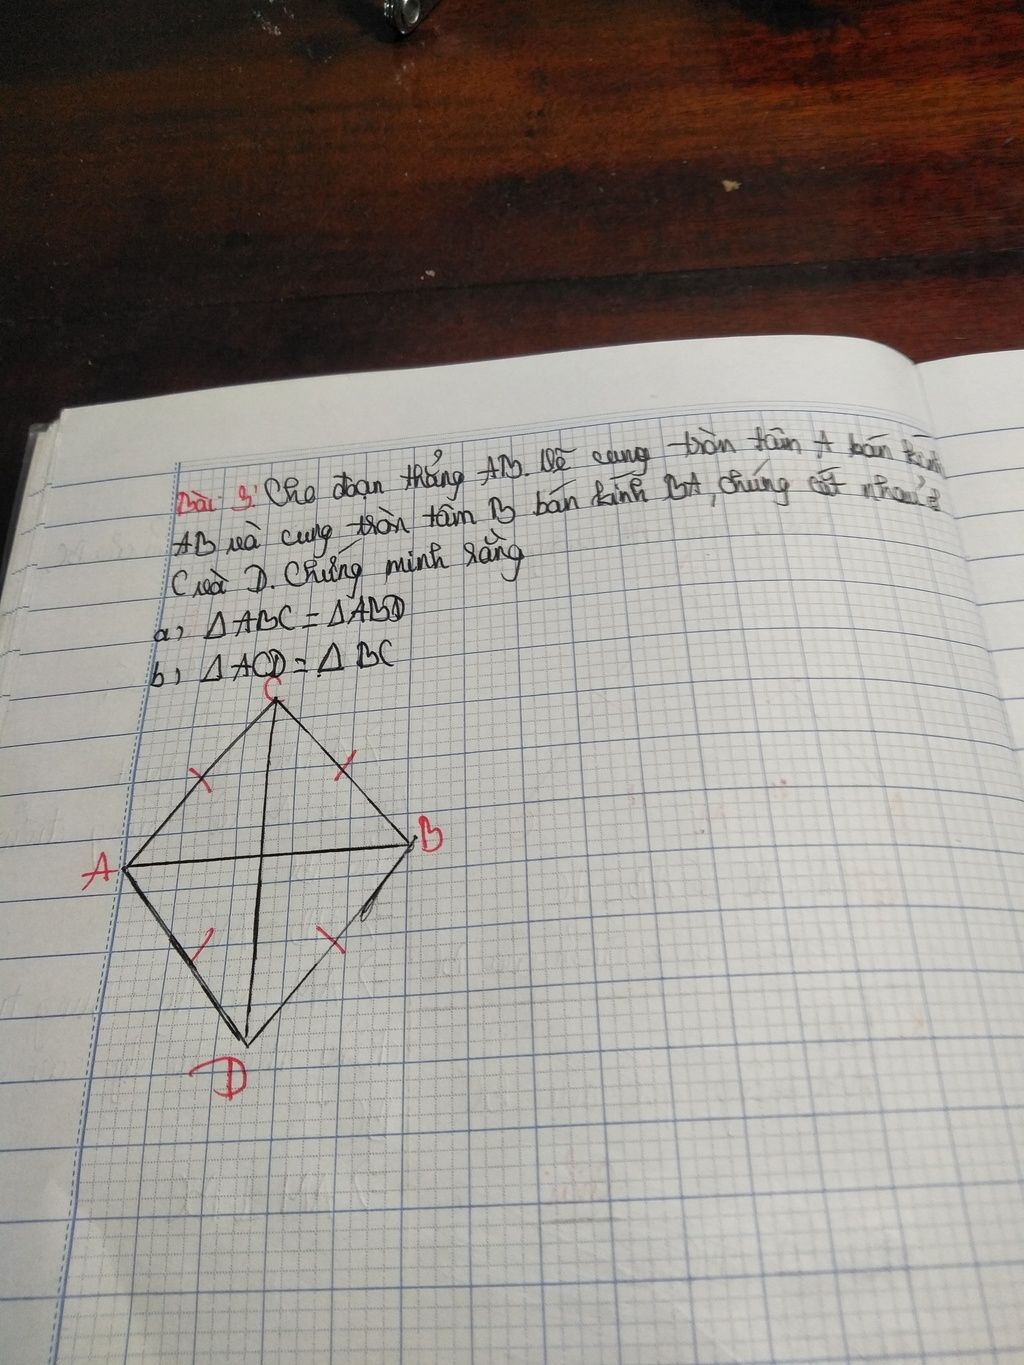 Bài 3: Cho đoạn thẳng AB. Vẽ cung tròn tâm A bán kính
AB và cung tròn tâm B bán kính BA, chúng cắt nhau ở
C và D. Chứng minh rằng
a, ΔABC = ΔABD
b, ΔACD = Δ BC
C
A
B
D